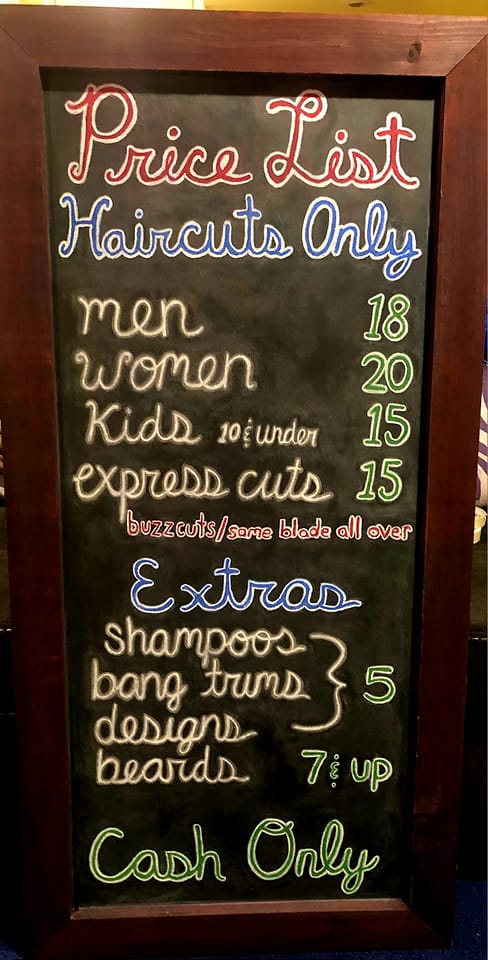 Price List
Haircuts Only
men 18
women 20
Kids 10 & under 15
express cuts 15
buzzcuts/same blade all over
Extras
shampoos
bang trims 5
designs
beards 7 & up
Cash Only